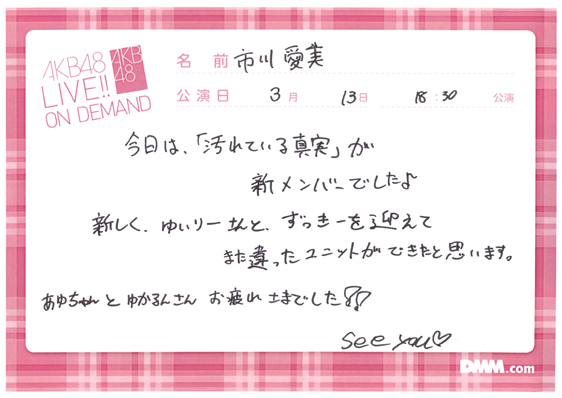 AKB48
LIVE!!
ON DEMAND
AKB
48
名 前 市川愛美
公演日 3月 13日 18:30 公演
今日は、「汚れている真実」が
新メンバーでした♪
新しく、ゆいりーさんと、ずっきーを迎えて
また違ったユニットができたと思います。
あゆちゃんとゆかるんさん お疲れさまでした!!
see you♡
DMM.com